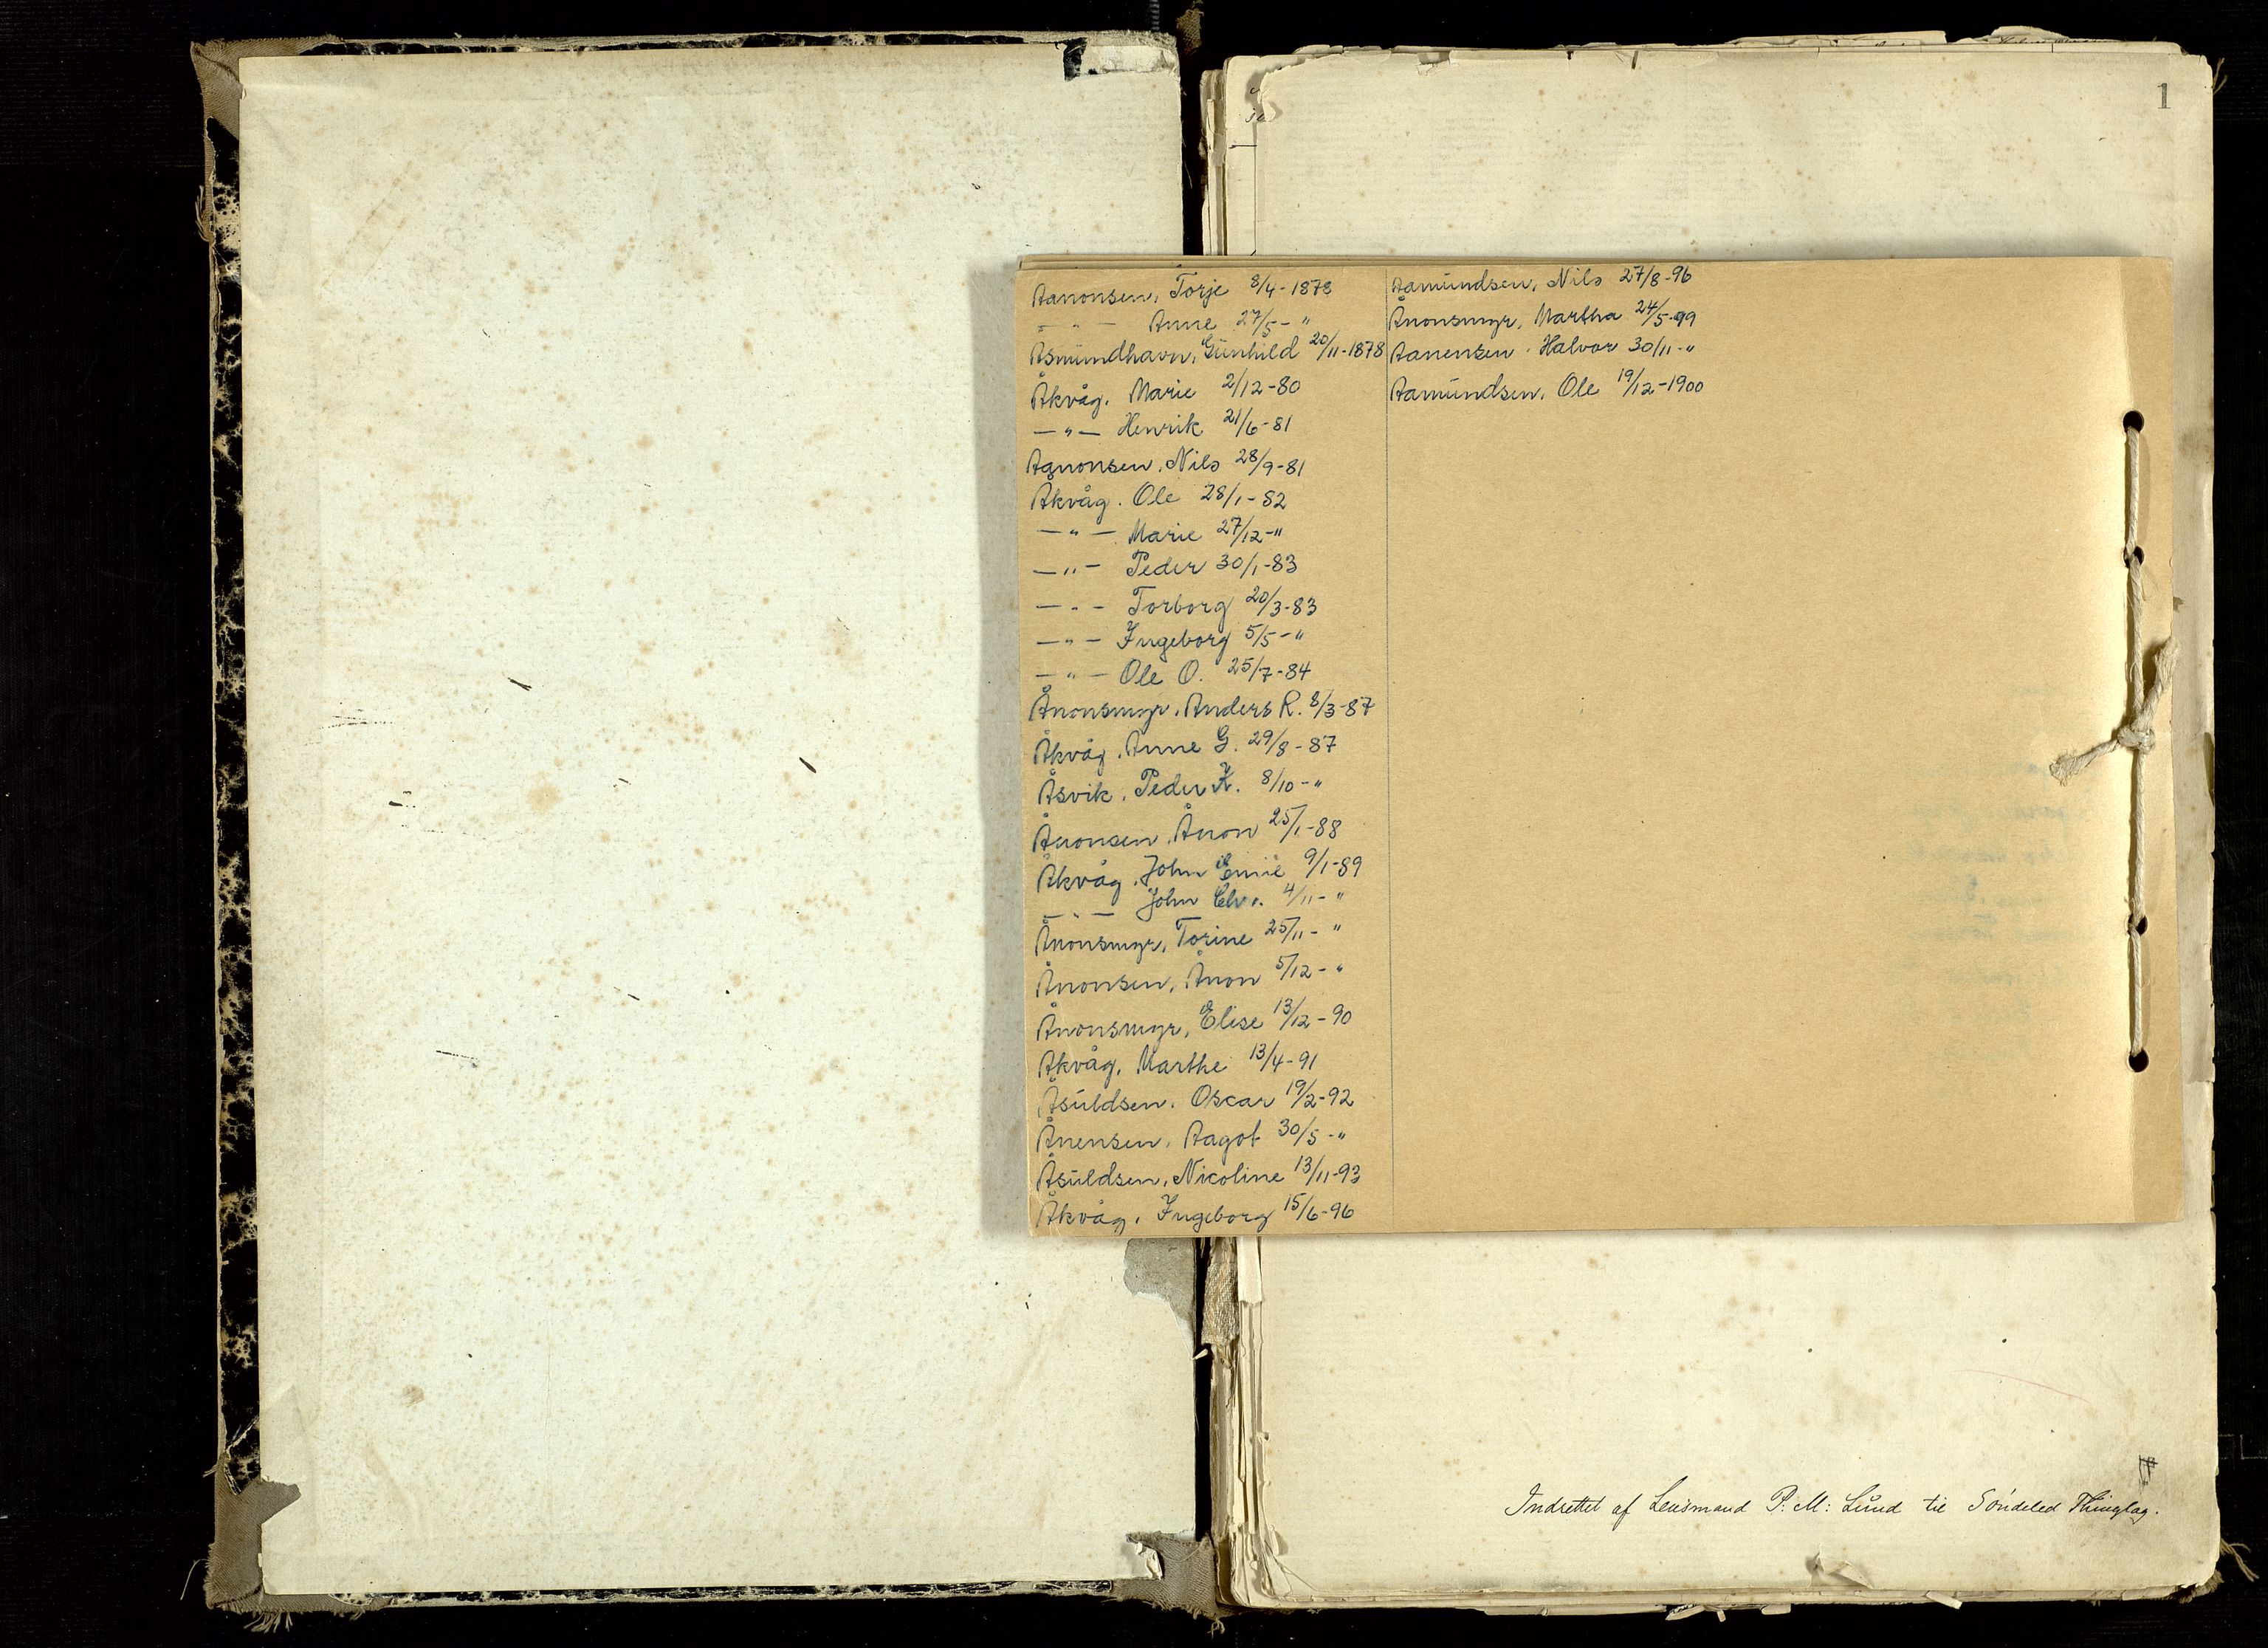 1
Aanonsen, Torje 8/4-1878
- " - Anne 27/5-"
Åsmundhavn, Gunhild 20/11-1878
Åkvåg, Marie 2/12-80
- " - Henrik 21/6-81
Aanonsen, Nils 28/9-81
Åkvåg. Ole 28/1-82
- " - Marie 27/12-"
- " - Peder 30/1-83
- " - Torborg 20/3-83
- " - Ingeborg 5/5-"
- " - Ole O. 25/7-84
Ånonsmyr, Anders R. 8/3-87
Åkvåg, Anne G. 29/8-87
Åsvik, Peder K. 8/10-"
Ånonsen, Ånon 25/1-88
Åkvåg, John Emil 9/1-89
- " - John Chr. 4/11-"
Ånonsmyr, Torine 25/11-"
Ånonsen, Ånon 5/12-"
Ånonsmyr, Elise 13/12-90
Åkvåg, Marthe 13/4-91
Åsuldsen, Oscar 19/2-92
Ånensen, Aagot 30/5-"
Åsuldsen, Nicoline 13/11-93
Åkvåg, Ingeborg 15/6-96
Aamundsen, Nils 27/8-96
Ånonsmyr, Martha 24/5-99
Aanensen, Halvor 30/11-"
Aamundsen, Ole 19/12-1900
Indrettet af Lensmand P: M: Lund til Søndeled Thinglag.